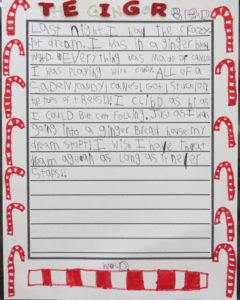 TE GINGER BIRD
Last night I had the crazys
t dream. I was in a ginger bread
world. Everything was made of candy
I was playing with candy. ALL OF A
SADRIN CANDY CANES! I got stuck on
the tops of trees!! I climb as hi as
I could But cep falling. Just as I was
going into a ginger bread house my
dream stopt! I wish I have that
dream agean as long as it never
stops!!